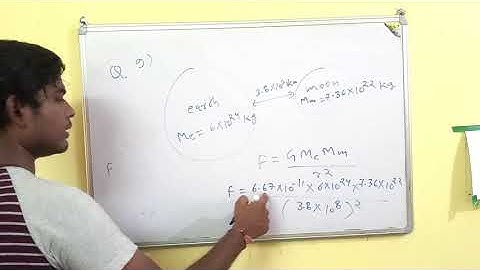 Q. 9)
earth
Me = 6×10²⁴ kg
3.8×10⁵ km
moon
Mm = 7.36×10²² kg
F = G Me Mm
r²
F = 6.67×10⁻¹¹ × 6×10²⁴ × 7.36×10²²
(3.8×10⁸)²